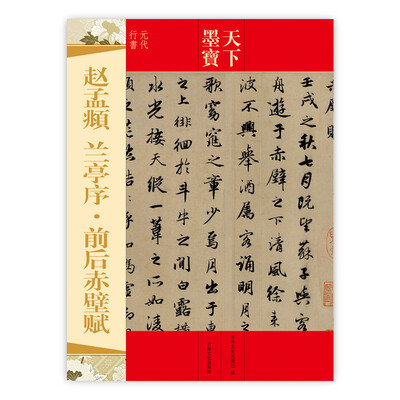 天下
墨寶
元代
行書
赵孟頫 兰亭序·前后赤壁赋
壬戌之秋七月既望蘇子與客
舟遊于赤壁之下清風徐来
波不興舉酒属客誦明月之
歌窈窕之章少焉月出于東
之上徘徊於斗牛之間白露橫
水光接天縱一葦之所如凌